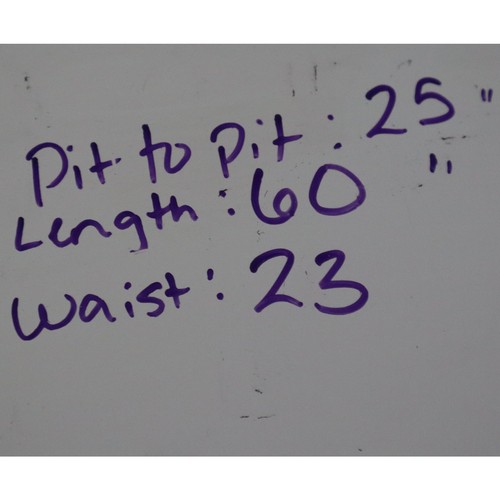 Pit to Pit: 25"
Length: 60"
Waist: 23